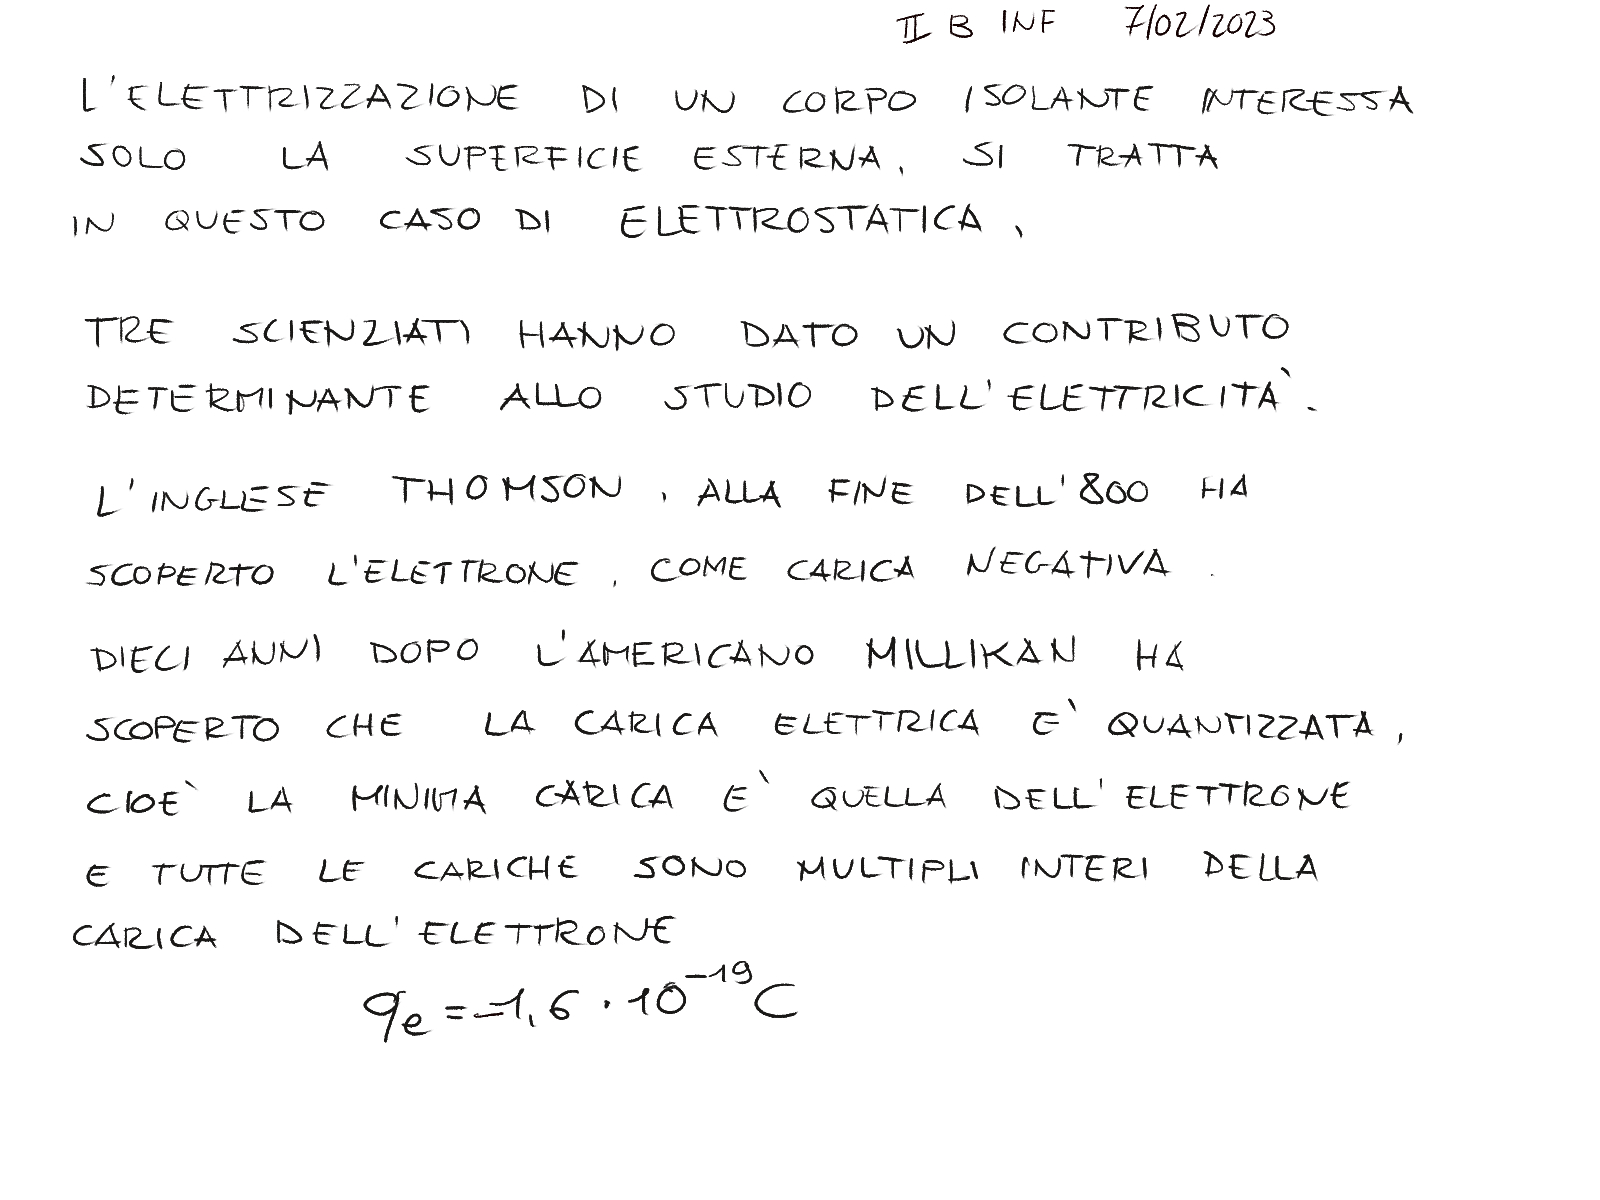 II B INF 7/02/2023
L'ELETTRIZZAZIONE DI UN CORPO ISOLANTE INTERESSA
SOLO LA SUPERFICIE ESTERNA, SI TRATTA
IN QUESTO CASO DI ELETTROSTATICA,
TRE SCIENZIATI HANNO DATO UN CONTRIBUTO
DETERMINANTE ALLO STUDIO DELL'ELETTRICITÀ.
L'INGLESE THOMSON, ALLA FINE DELL'800 HA
SCOPERTO L'ELETTRONE, COME CARICA NEGATIVA.
DIECI ANNI DOPO L'AMERICANO MILLIKAN HA
SCOPERTO CHE LA CARICA ELETTRICA E` QUANTIZZATA,
CIOE` LA MINIMA CARICA E` QUELLA DELL'ELETTRONE
E TUTTE LE CARICHE SONO MULTIPLI INTERI DELLA
CARICA DELL'ELETTRONE
qₑ = -1,6 · 10⁻¹⁹ C